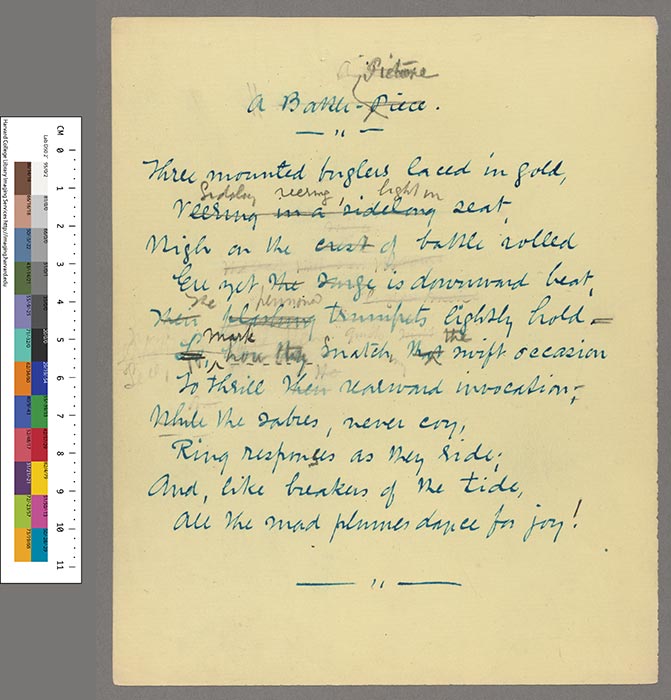 Picture
A Battle-Piece.
Three mounted buglers laced in gold,
Sidelong veering, light in
Veering in a sidelong seat,
Nigh on the crest of battle rolled
Ere yet the surge is downward beat,
The pennoned
Their flashing trumpets lightly hold—
Mark the
Lo, how they Snatch that swift occasion
To thrill their rearward invocation;
While the sabres, never coy,
Ring responses as they ride;
And, like breakers of the tide,
All the mad plumes dance for joy!
CM 0 1 2 3 4 5 6 7 8 9 10 11
Harvard College Library Imaging Services